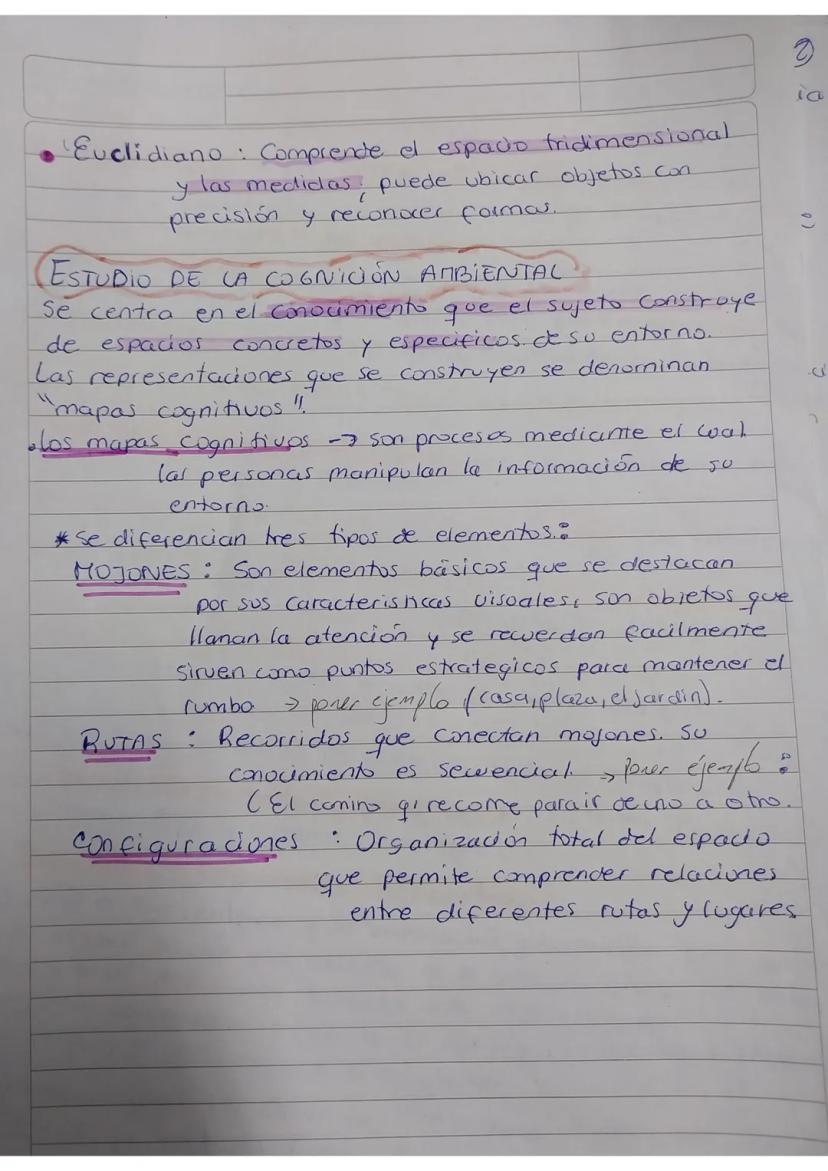 2)
ia
• Euclidiano : Comprende el espacio tridimensional
y las medidas, puede ubicar objetos con
precisión y reconocer formas.
ESTUDIO DE LA COGNICIÓN AMBIENTAL
Se centra en el conocimiento que el sujeto construye
de espacios concretos y especificos de su entorno.
Las representaciones que se construyen se denominan
"mapas cognitivos".
• los mapas cognitivos → son procesos mediante el cual
las personas manipulan la información de su
entorno.
* Se diferencian tres tipos de elementos:
MOJONES : Son elementos básicos que se destacan
por sus caracteristicas visuales, son objetos que
llaman la atención y se recuerdan facilmente
sirven como puntos estrategicos para mantener el
rumbo → poner ejemplo (casa, plaza, el jardin).
RUTAS : Recorridos que conectan mojones. Su
conocimiento es secuencial. → poner ejemplo :
(El camino q' recorre para ir de uno a otro.
Configuraciones : Organización total del espacio
que permite comprender relaciones
entre diferentes rutas y lugares